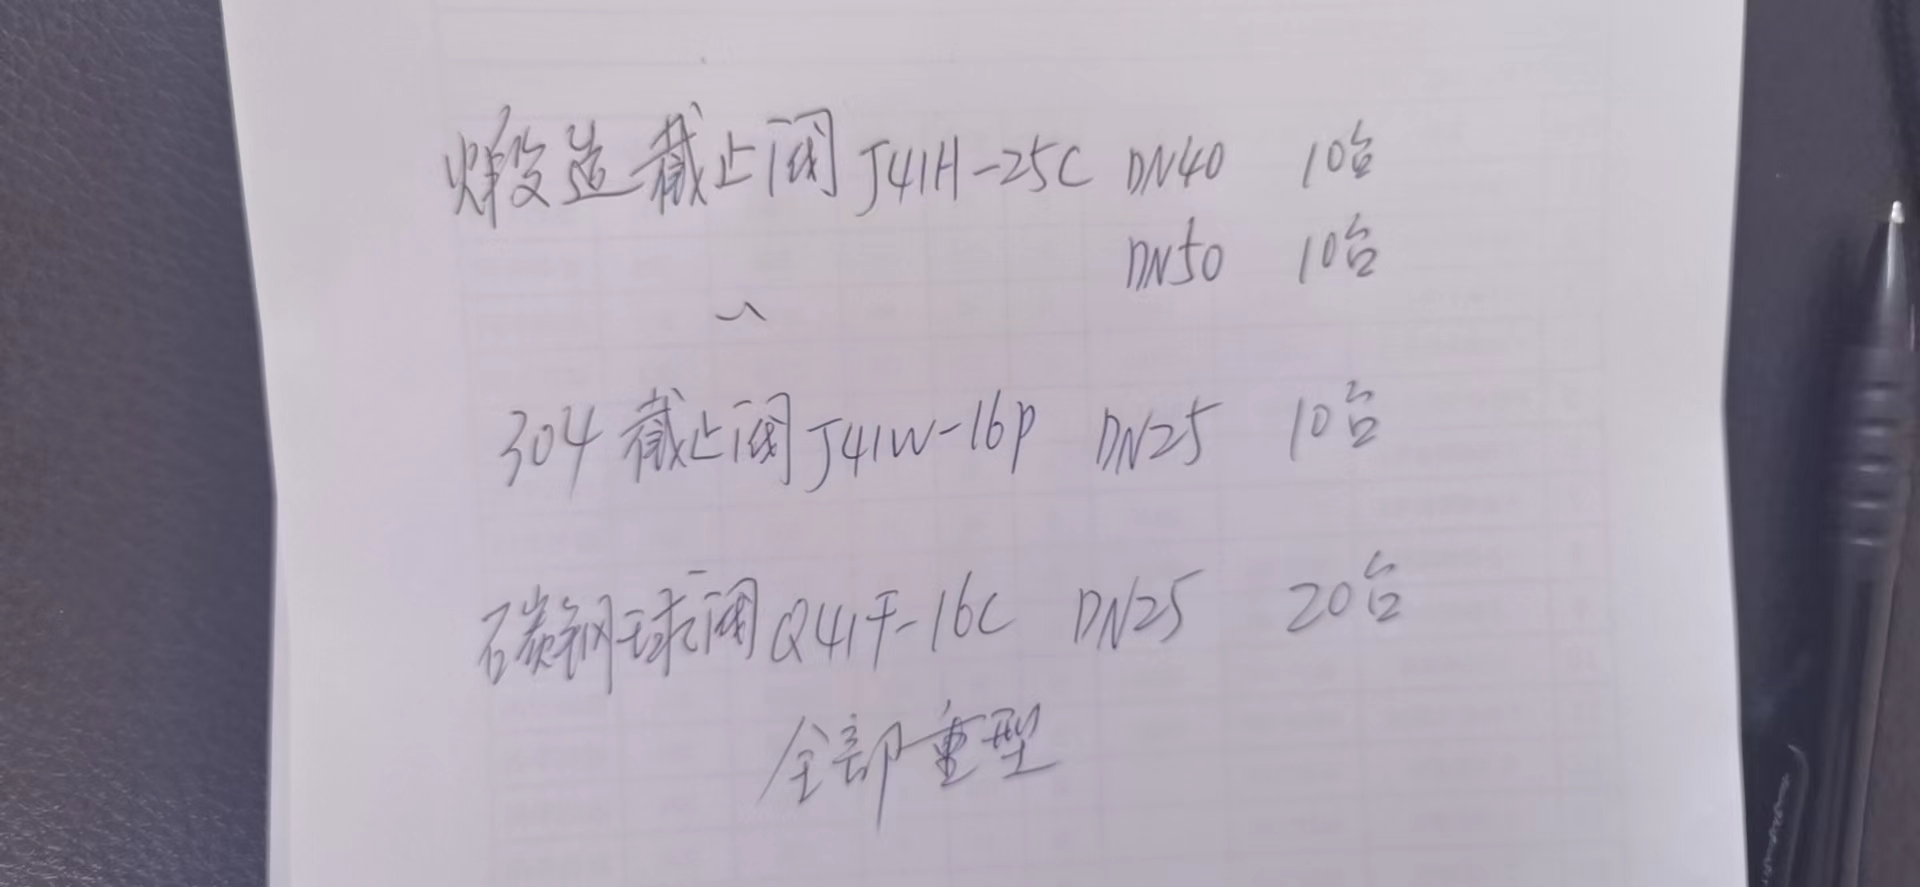 煅造截止阀 J41H-25C DN40 10台
DN50 10台
304 截止阀 J41W-16P DN25 10台
碳钢球阀 Q41F-16C DN25 20台
全部重型